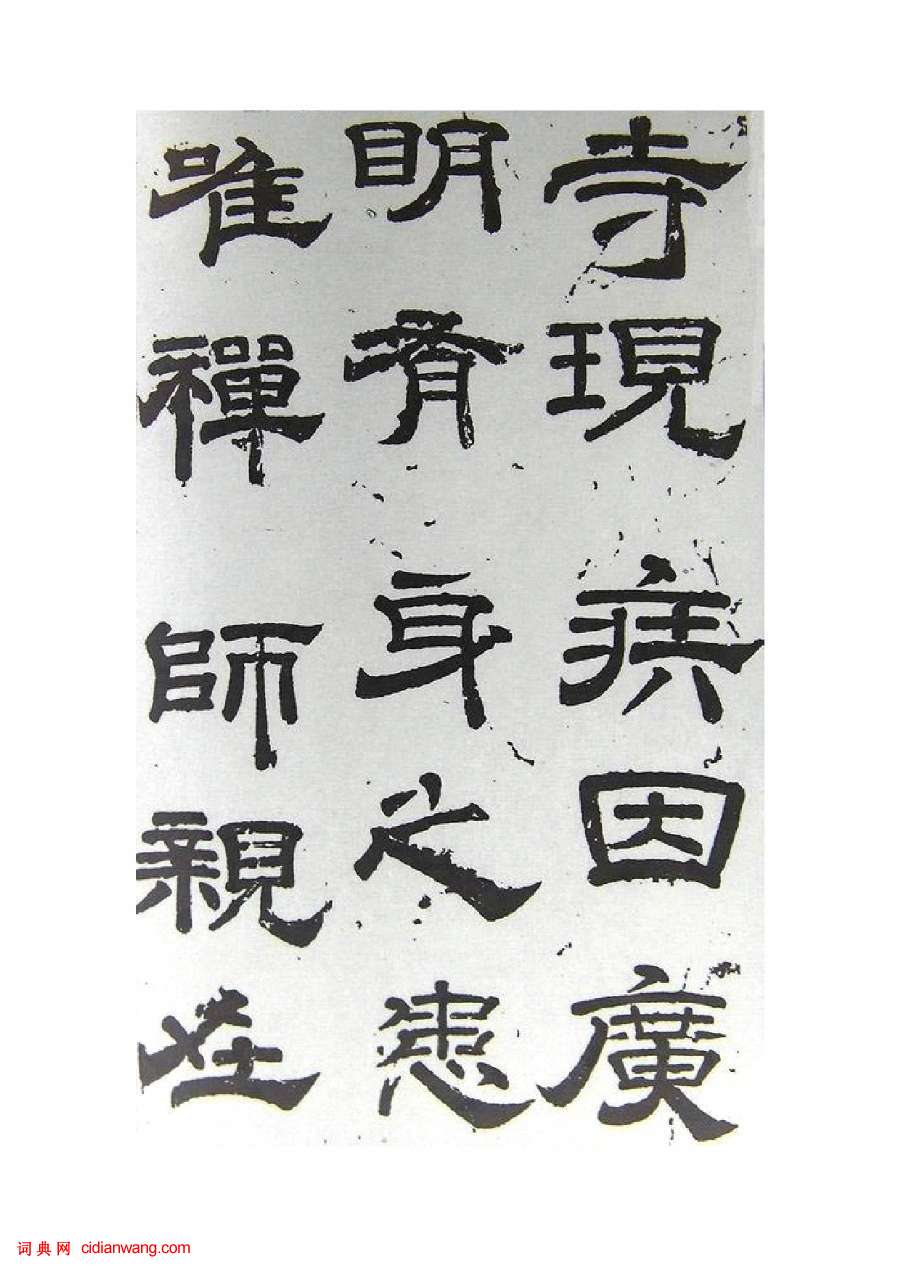 寺現疾因廣
明有身之患
唯禪師親在
词典网 cidianwang.com